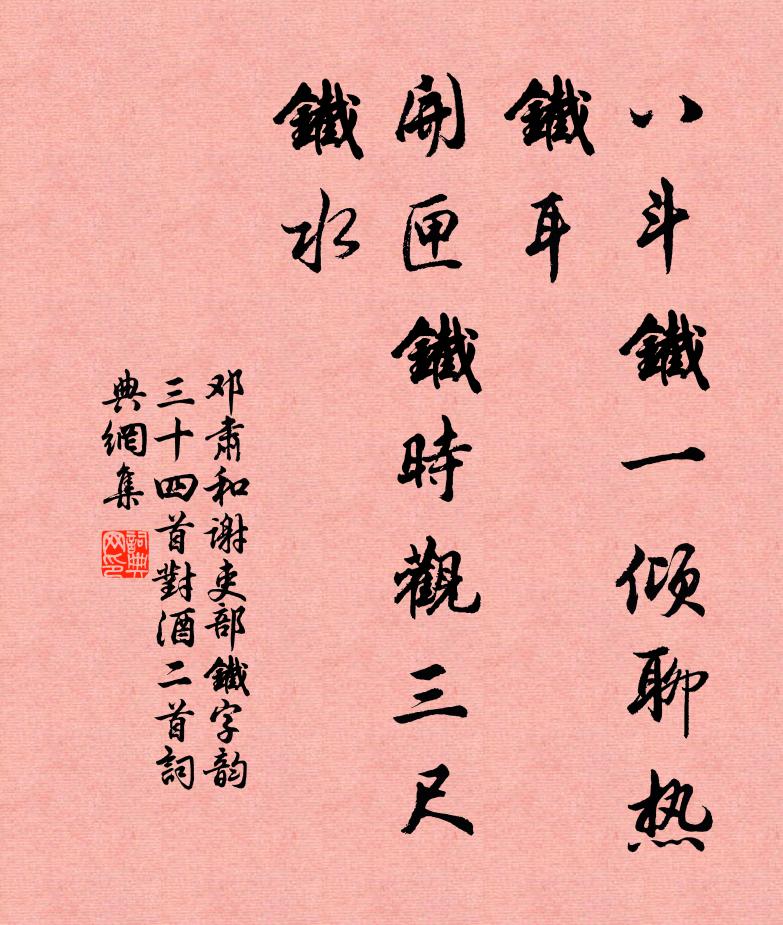 八斗鐵一倾聊热
鐵耳
開匣鐵時觀三尺
鐵水
邓肅和谢吏部鐵字韵
三十四首對酒二首詞
典網集
詞典网印